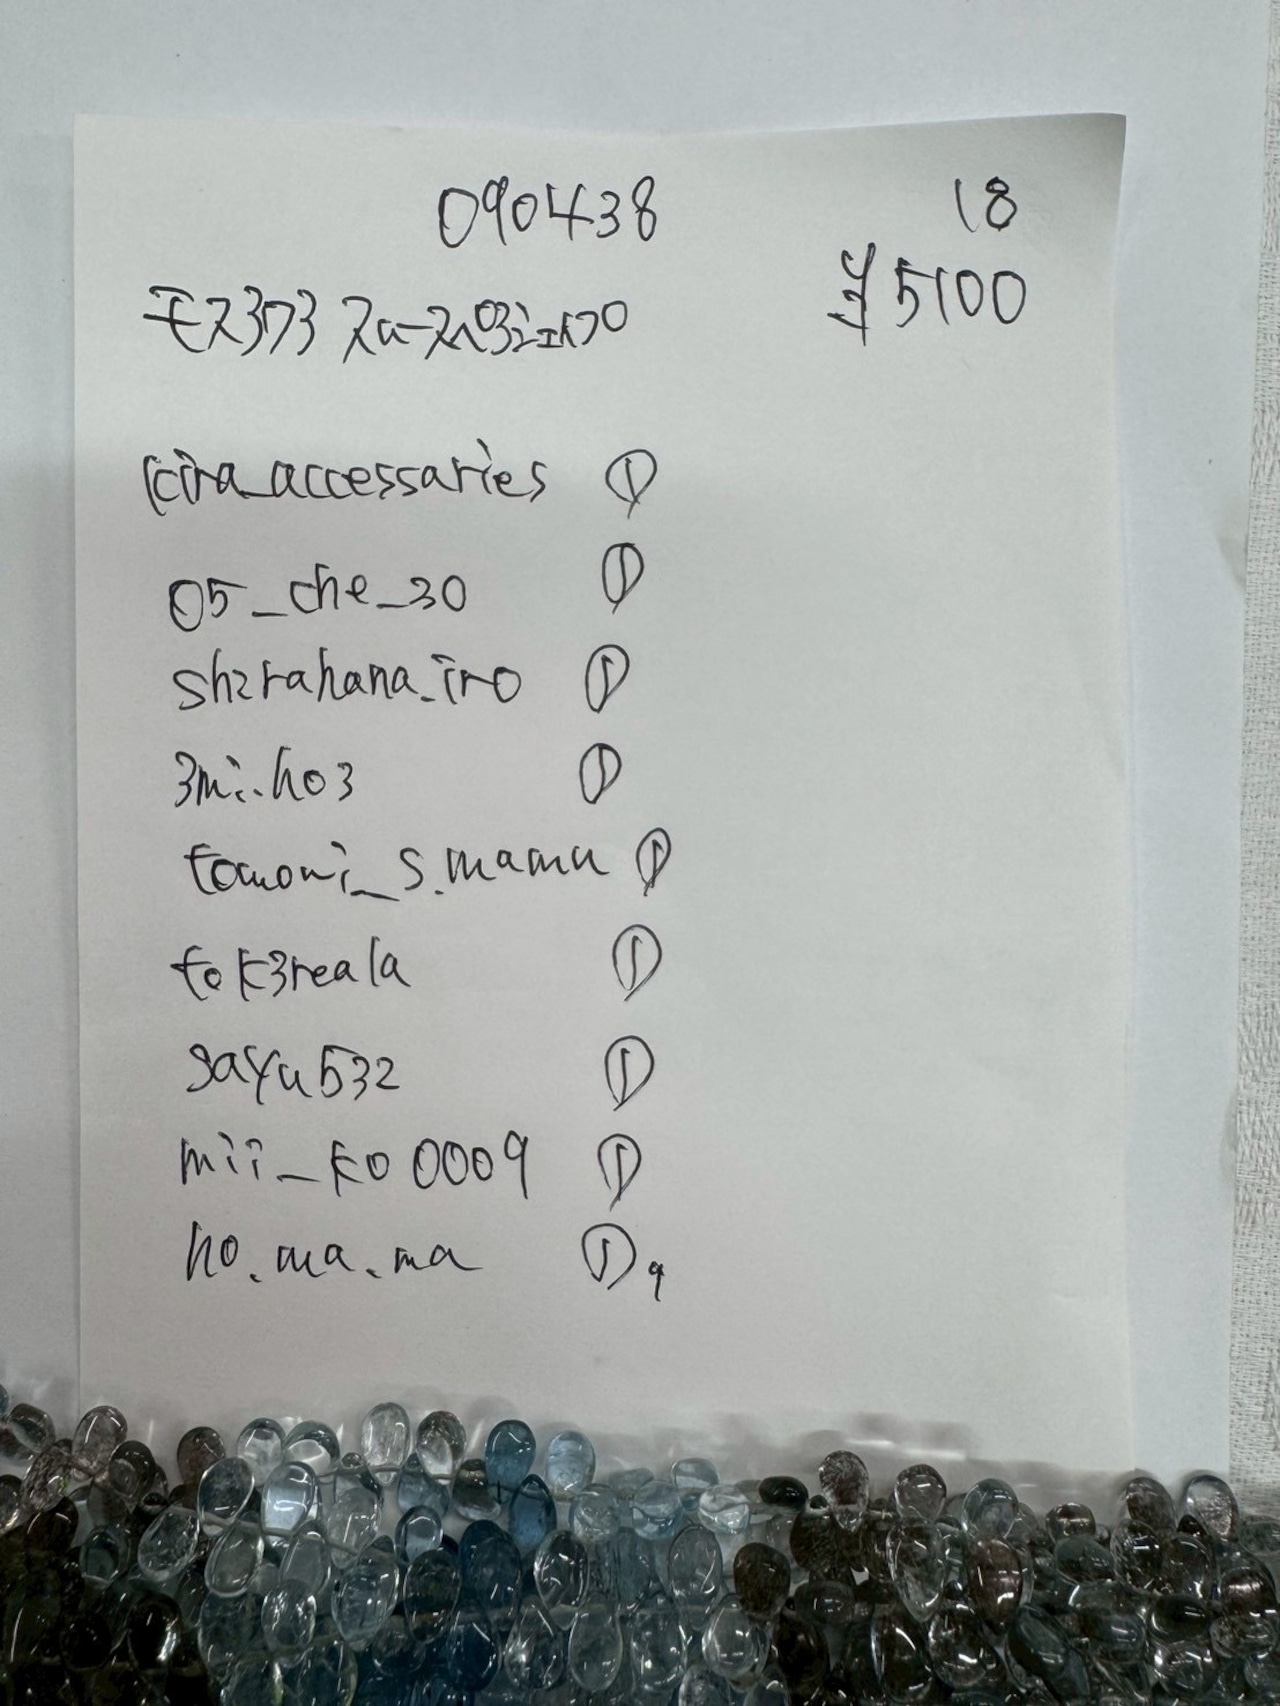 090438 18
¥5100
モス373
kira_accessaries ①
05_che_30 ①
shirahana_iro ①
3mi.ho3 ①
tomomi_s.mama ①
tok3reala ①
sayu532 ①
mii_ko0009 ①
ho.ma.ma ① 9